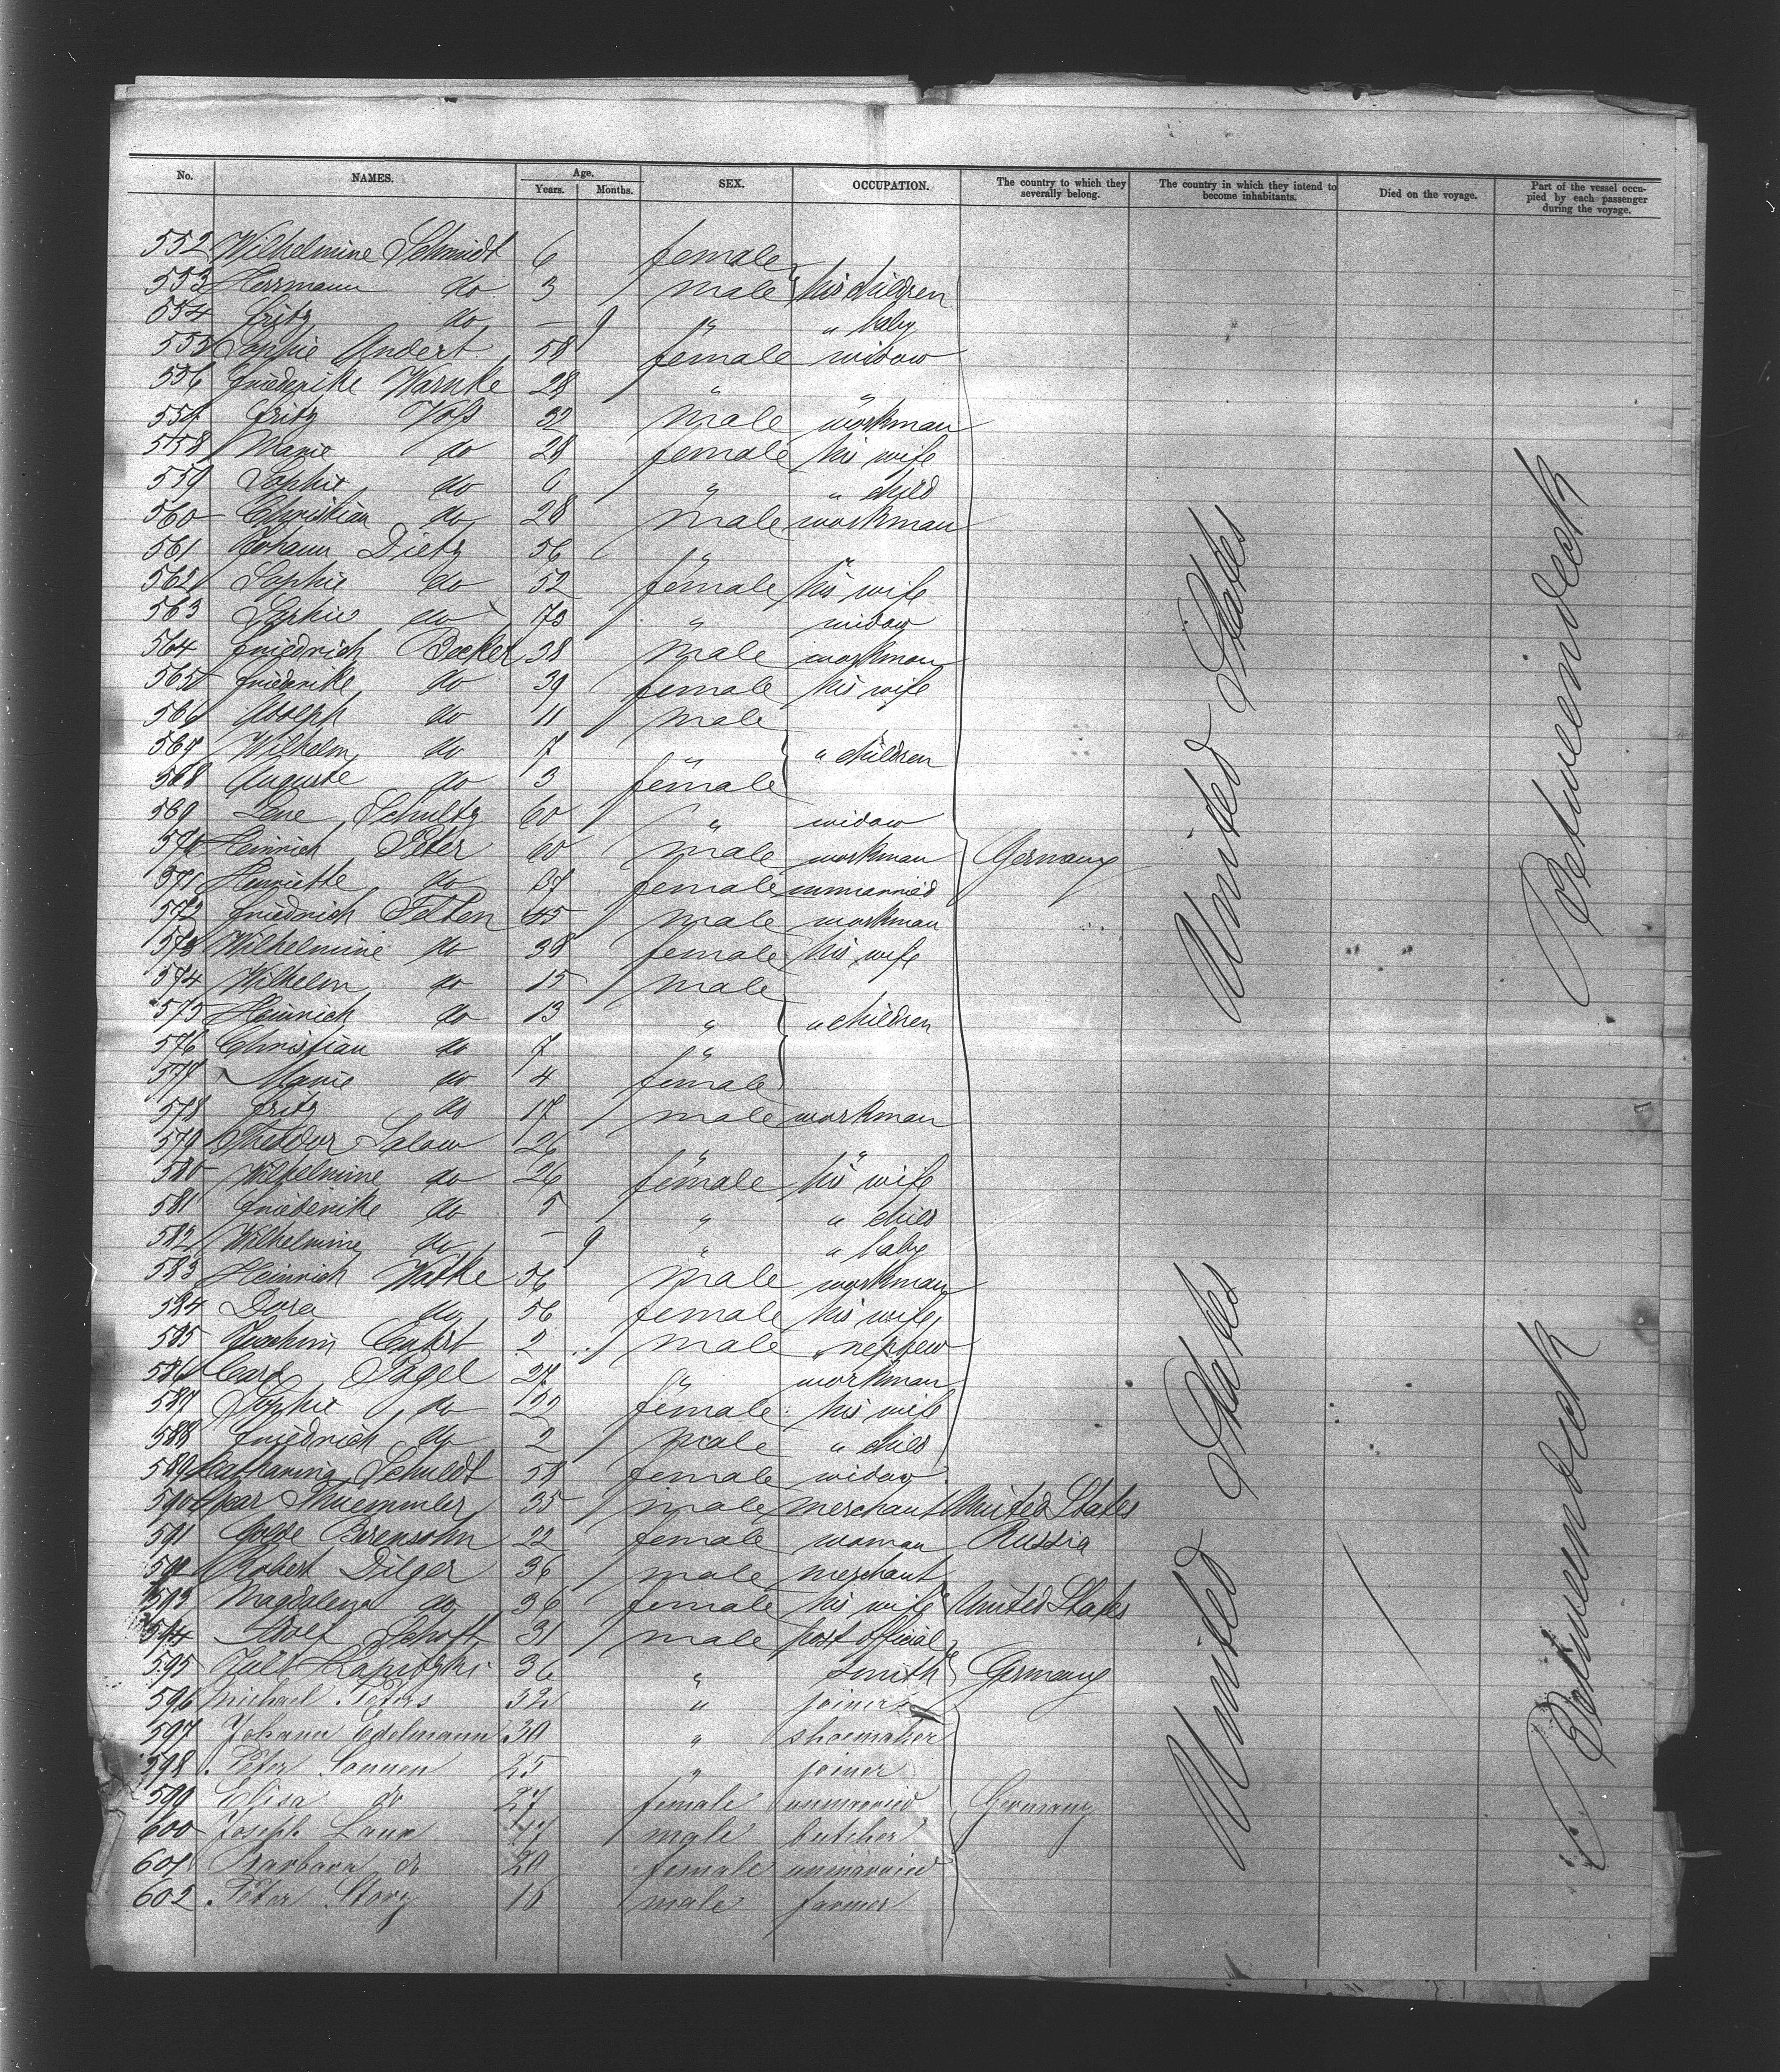 No. NAMES. Age. Years. Months. SEX. OCCUPATION. The country to which they severally belong. The country in which they intend to become inhabitants. Died on the voyage. Part of the vessel occupied by each passenger during the voyage.
552 Wilhelmine Schmidt 6 female
553 Herrmann do 3 male his children
554 Fritz do — 9 " " baby
555 Sophie Andert 58 female widow
556 Friederike Warnke 28 " "
557 Fritz Voß 32 male workman
558 Marie do 28 female his wife
559 Sophie do 6 " " child
560 Christian do 28 male workman
561 Johann Dietz 56 " "
562 Sophie do 52 female his wife
563 Sophie do 73 " widow
564 Friedrich Becker 38 male workman
565 Friederike do 39 female his wife
566 Adolph do 11 male
567 Wilhelm do 7 " " children
568 Auguste do 3 female
569 Lene Schultz 60 " widow
570 Heinrich Peter 60 male workman Germany
571 Henriette do 37 female unmarried
572 Friedrich Felten 45 male workman
573 Wilhelmine do 38 female his wife
574 Wilhelm do 15 male
575 Heinrich do 13 " " children
576 Christian do 7 "
577 Marie do 4 female
578 Fritz do 17 male workman
579 Theodor Salow 26 " "
580 Wilhelmine do 26 female his wife
581 Friederike do 5 " " child
582 Wilhelmine do — 9 " " baby
583 Heinrich Watke 56 male workman
584 Dora do 56 female his wife
585 Joachim 2 male " nephew
586 Carl Pagel 27 " workman
587 Sophie do 22 female his wife
588 Friedrich do 2 male " child
589 Catharina Schuldt 58 female widow
590 Oscar Thuemmler 35 male merchant United States
591 Golde Berensohn 22 female woman Russia
592 Robert Dilger 36 male merchant
593 Magdalena do 36 female his wife United States
594 Schoft 31 male post official
595 36 " smith Germany
596 Michael Peters 32 " joiner
597 Johann Edelmann 30 " shoemaker
598 Peter Sonnen 25 " joiner
599 Elisa do 27 female unmarried Germany
600 Joseph Laux 27 male butcher
601 Barbara do 20 female unmarried
602 Peter Story 16 male farmer
United States
Betweendeck
United States
Betweendeck